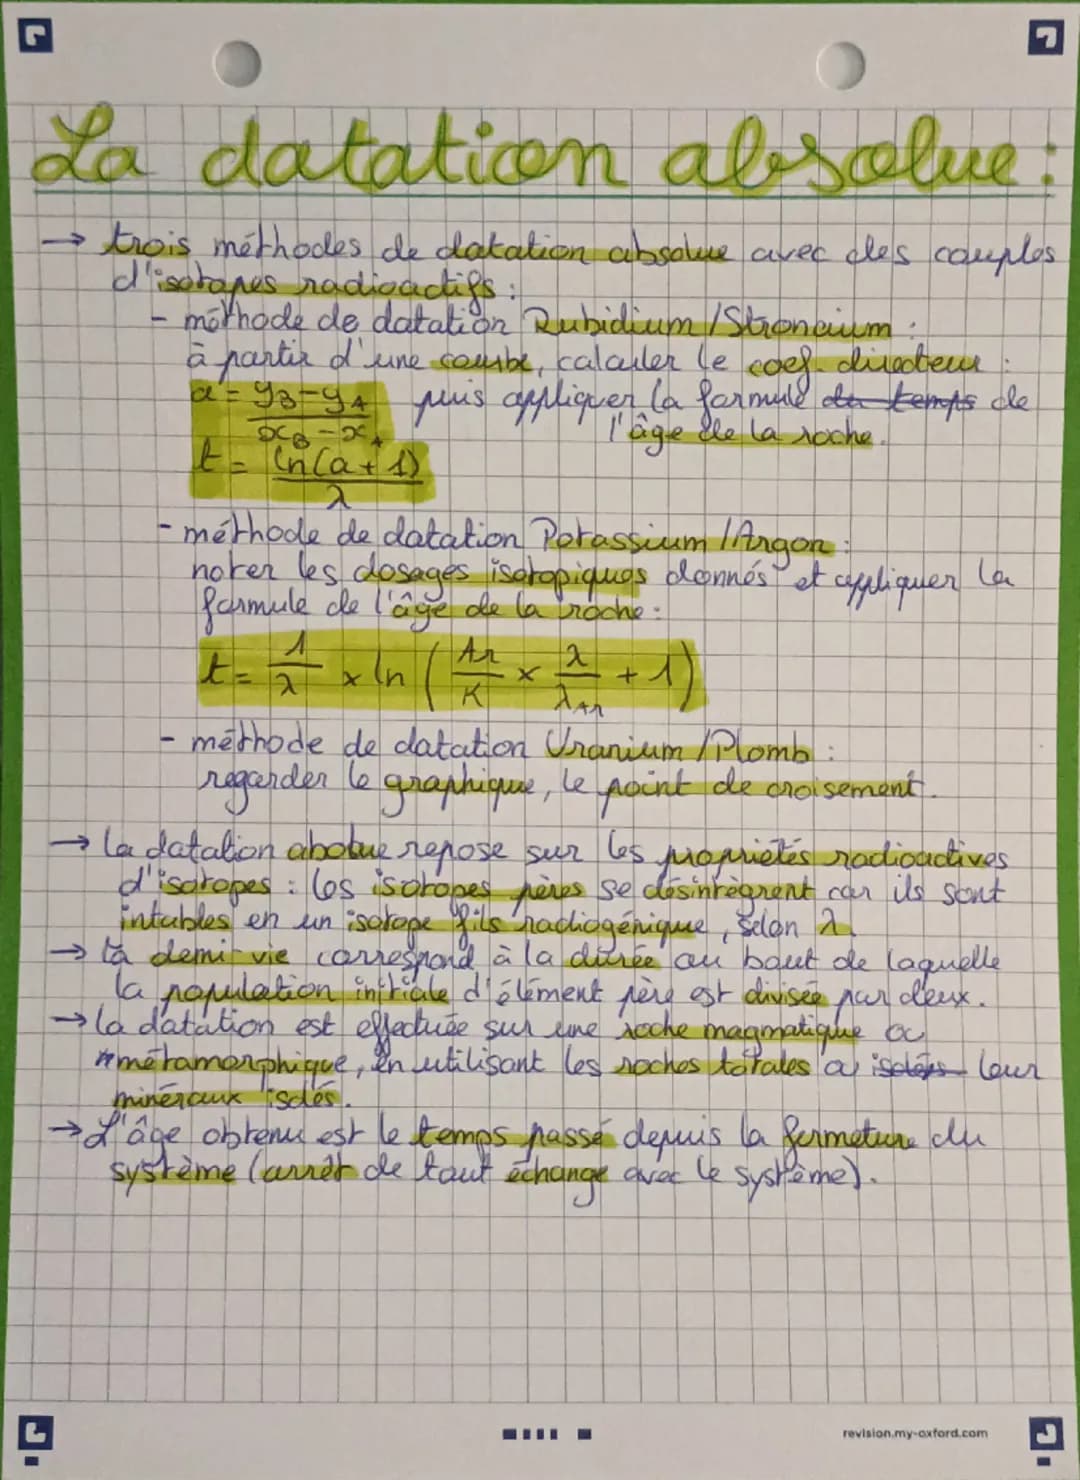 La datation absolue :
→ trois méthodes de datation absolue avec des couples
d'isotopes radioactifs :
- méthode de datation Rubidium / Strontium :
à partir d'une courbe, calculer le coef. directeur :
a = yB - yA / xB - xA puis appliquer la formule du temps de
l'âge de la roche.
t = ln(a + 1) / λ
- méthode de datation Potassium / Argon :
noter les dosages isotopiques donnés et appliquer la
formule de l'âge de la roche :
t = 1/λ × ln ( Ar/K × λ/λAr + 1 )
- méthode de datation Uranium / Plomb :
regarder le graphique, le point de croisement.
→ la datation abolue repose sur les propriétés radioactives
d'isotopes : les isotopes pères se désintègrent car ils sont
intables en un isotope fils radiogénique, selon λ.
→ la demi-vie correspond à la durée au bout de laquelle
la population initiale d'élément père est divisée par deux.
→ la datation est effectuée sur une roche magmatique ou
métamorphique, en utilisant les roches totales ou isolés leur
minéraux isolés.
→ L'âge obtenu est le temps passé depuis la fermeture du
système (arrêt de tout échange avec le système).
revision.my-oxford.com